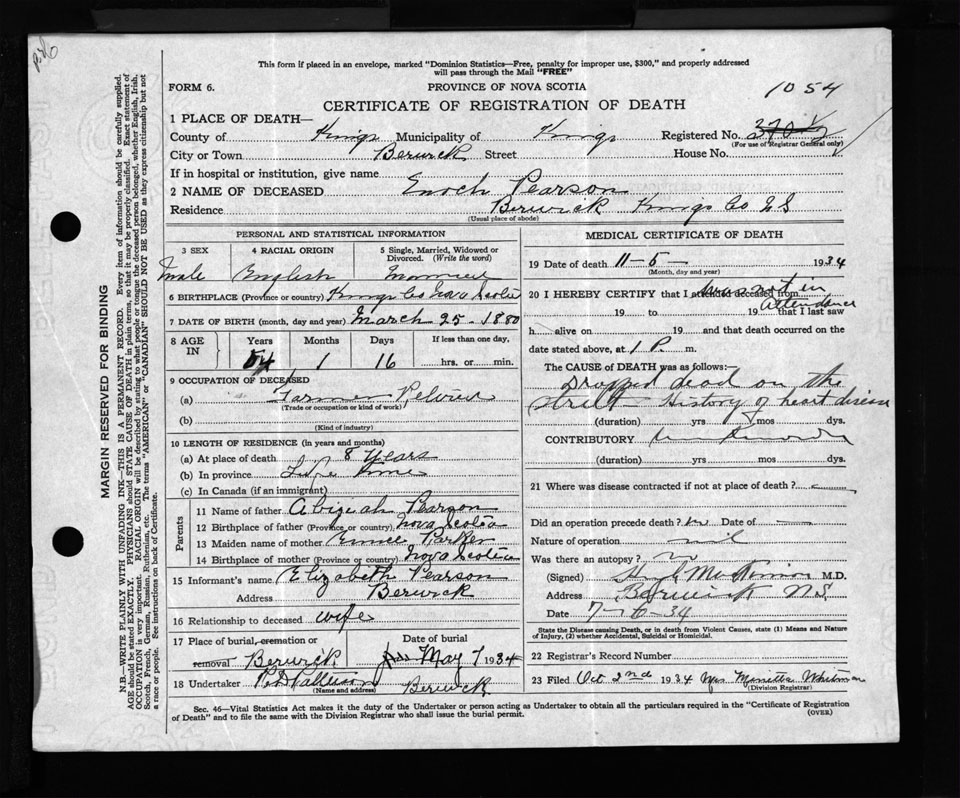 This form if placed in an envelope, marked "Dominion Statistics—Free, penalty for improper use, $300," and properly addressed
will pass through the Mail "FREE"
FORM 6. PROVINCE OF NOVA SCOTIA 1054
CERTIFICATE OF REGISTRATION OF DEATH
1 PLACE OF DEATH—
County of Kings Municipality of Kings Registered No.
(For use of Registrar General only)
City or Town Berwick Street House No.
If in hospital or institution, give name
2 NAME OF DECEASED Enoch Pearson
Residence Berwick Kings Co N S
(Usual place of abode)
PERSONAL AND STATISTICAL INFORMATION
3 SEX 4 RACIAL ORIGIN 5 Single, Married, Widowed or
Divorced. (Write the word)
Male English Married
6 BIRTHPLACE (Province or country) Kings Co Nova Scotia
7 DATE OF BIRTH (month, day and year) March 25 - 1880
8 AGE IN Years Months Days If less than one day,
54 1 16 hrs. or min.
9 OCCUPATION OF DECEASED
(a) Farmer
(Trade or occupation or kind of work)
(b)
(Kind of industry)
10 LENGTH OF RESIDENCE (in years and months)
(a) At place of death 8 years
(b) In province Life time
(c) In Canada (if an immigrant)
Parents
11 Name of father Pearson
12 Birthplace of father (Province or country) Nova Scotia
13 Maiden name of mother Parker
14 Birthplace of mother (Province or country) Nova Scotia
15 Informant's name Elizabeth Pearson
Address Berwick
16 Relationship to deceased wife
17 Place of burial, cremation or Date of burial
removal Berwick May 7 1934
18 Undertaker
(Name and address) Berwick
MEDICAL CERTIFICATE OF DEATH
19 Date of death 11-5- 1934
(Month, day and year)
20 I HEREBY CERTIFY that I attended deceased from was not in
attendence
19 to 19 that I last saw
h alive on 19 and that death occurred on the
date stated above, at 1 P. m.
The CAUSE of DEATH was as follows:
Dropped dead on the
street History of heart disease
(duration) yrs mos dys.
CONTRIBUTORY
(duration) yrs mos dys.
21 Where was disease contracted if not at place of death?
Did an operation precede death? no Date of
Nature of operation nil
Was there an autopsy? no
(Signed) M.D.
Address Berwick N.S.
Date 7-6-34
State the Disease causing Death, or in death from Violent Causes, state (1) Means and Nature
of Injury, (2) whether Accidental, Suicidal or Homicidal.
22 Registrar's Record Number
23 Filed Oct 2nd 1934 Mrs Whitman
(Division Registrar)
Sec. 46—Vital Statistics Act makes it the duty of the Undertaker or person acting as Undertaker to obtain all the particulars required in the "Certificate of Registration
of Death" and to file the same with the Division Registrar who shall issue the burial permit. (OVER)
MARGIN RESERVED FOR BINDING
N.B.—WRITE PLAINLY WITH UNFADING INK—THIS IS A PERMANENT RECORD. Every item of information should be carefully supplied.
AGE should be stated EXACTLY. PHYSICIANS should STATE CAUSE OF DEATH in plain terms, so that it may be properly classified. Exact statement of
OCCUPATION is very important. RACIAL ORIGIN will be described by stating to what people or tongue the deceased person belonged, whether English, Irish,
Scotch, French, German, Russian, Ruthenian, etc. The terms "AMERICAN" or "CANADIAN" SHOULD NOT BE USED as they express citizenship but not
a race or people. See instructions on back of Certificate.